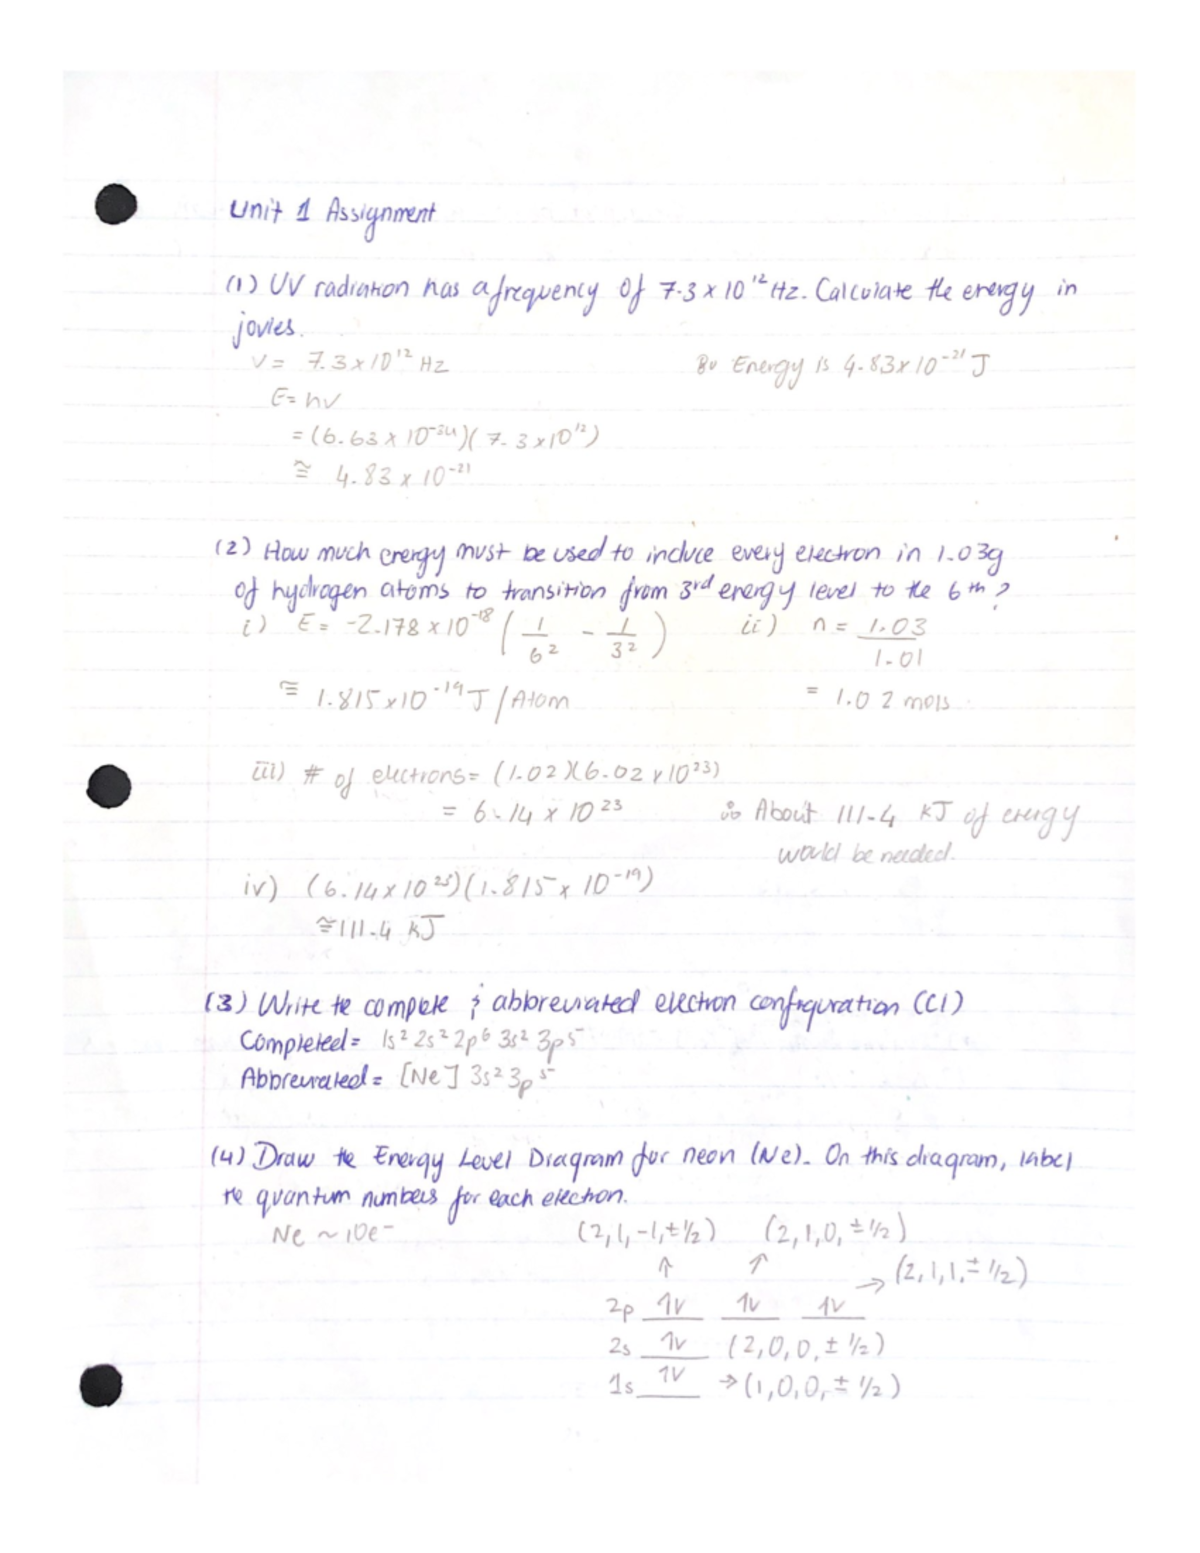 Unit 1 Assignment
(1) UV radiation has a frequency of 7.3 x 10¹² Hz. Calculate the energy in
joules.
V = 7.3 x 10¹² Hz
E = hv
= (6.63 x 10⁻³⁴)(7.3 x 10¹²)
≅ 4.83 x 10⁻²¹
Energy is 4.83 x 10⁻²¹ J
(2) How much energy must be used to induce every electron in 1.03g
of hydrogen atoms to transition from 3rd energy level to the 6th?
i) E = -2.178 x 10⁻¹⁸ (1/6² - 1/3²)
≅ 1.815 x 10⁻¹⁹ J / Atom
ii) n = 1.03/1.01
= 1.02 mols
iii) # of electrons = (1.02)(6.02 x 10²³)
= 6.14 x 10²³
iv) (6.14 x 10²³)(1.815 x 10⁻¹⁹)
≅ 111.4 kJ
∴ About 111.4 kJ of energy
would be needed.
(3) Write the complete & abbreviated electron configuration (Cl)
Completed = 1s² 2s² 2p⁶ 3s² 3p⁵
Abbreviated = [Ne] 3s² 3p⁵
(4) Draw the Energy Level Diagram for neon (Ne). On this diagram, label
the quantum numbers for each electron.
Ne ~ 10e⁻
(2,1,-1,±1/2) (2,1,0,±1/2)
↑ ↑ → (2,1,1,±1/2)
2p 1v 1v 1v
2s 1v (2,0,0,±1/2)
1s 1v → (1,0,0,±1/2)